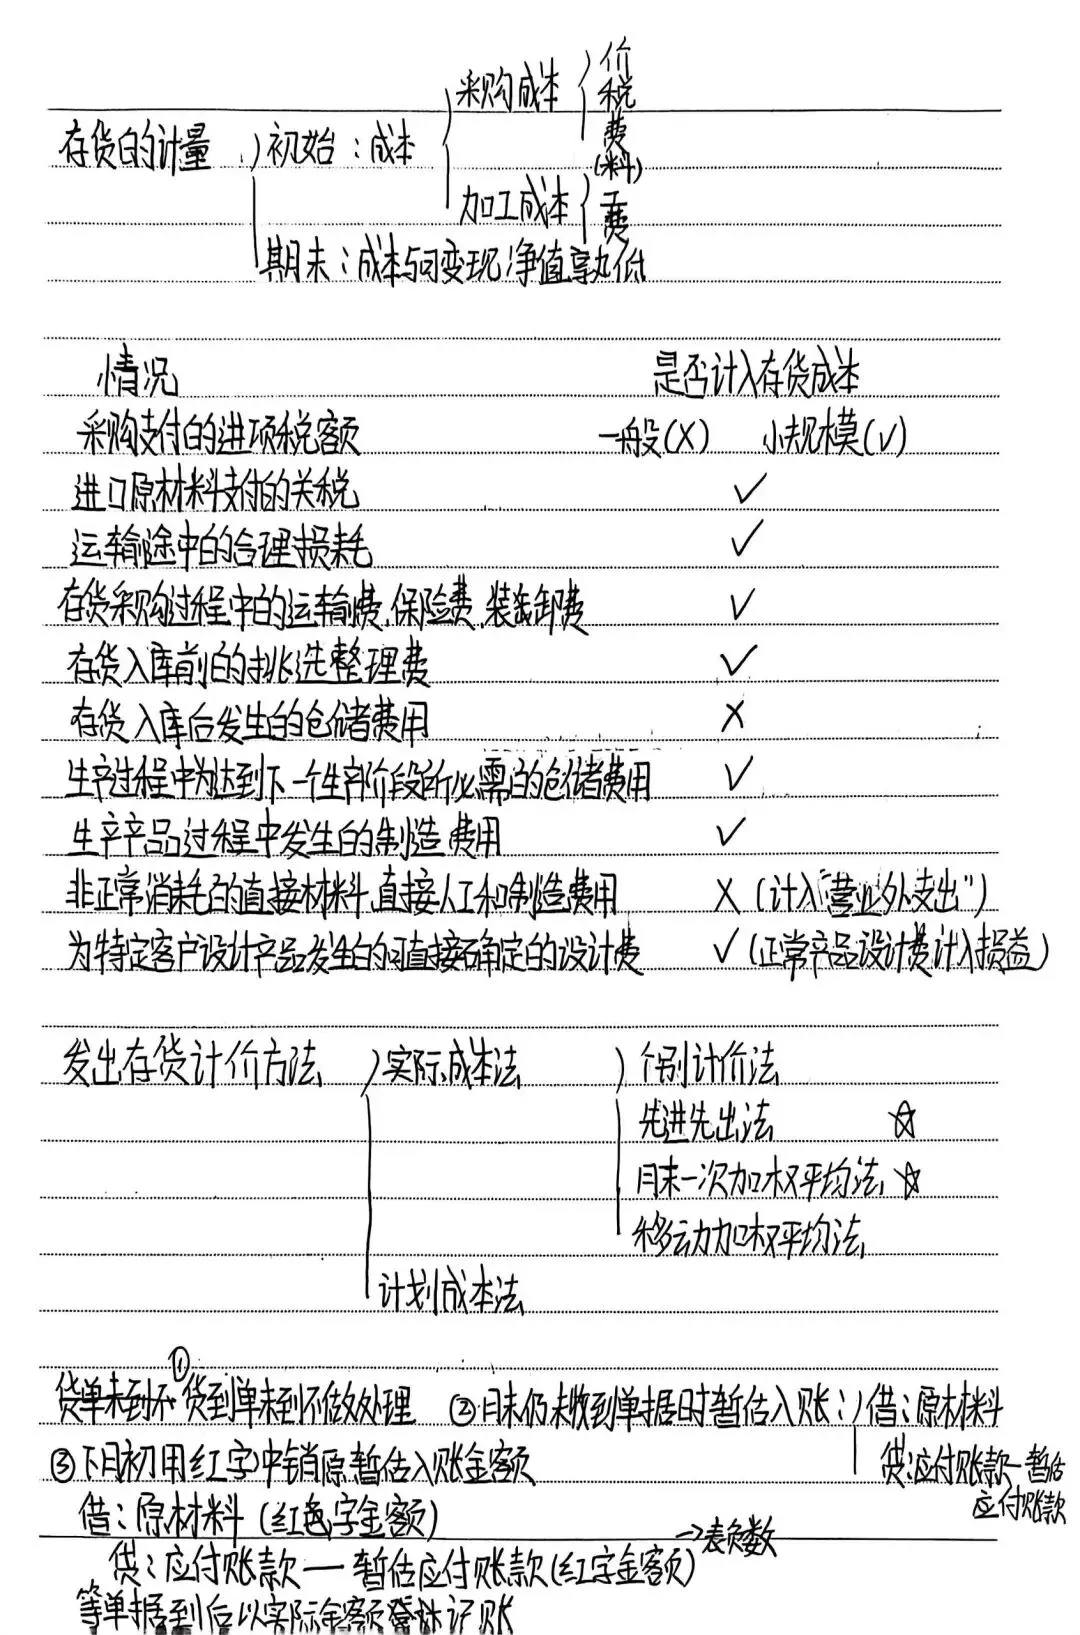 采购成本 { 价
税
费
存货的计量 初始：成本
(料)
加工成本 { 工
费
期末：成本与可变现净值孰低
情况 是否计入存货成本
采购支付的进项税额 一般(X) 小规模(√)
进口原材料支付的关税 √
运输途中的合理损耗 √
存货采购过程中的运输费、保险费、装卸费 √
存货入库前的挑选整理费 √
存货入库后发生的仓储费用 X
生产过程中为达到下一个生产阶段所必需的仓储费用 √
生产产品过程中发生的制造费用 √
非正常消耗的直接材料、直接人工和制造费用 X (计入“营业外支出”)
为特定客户设计产品发生的可直接确定的设计费 √(正常产品设计费计入损益)
发出存货计价方法 实际成本法 个别计价法
先进先出法 ☆
月末一次加权平均法 ☆
移动加权平均法
计划成本法
①货到单未到不做处理 ②月末仍未收到单据时暂估入账：借：原材料
贷：应付账款—暂估
应付账款
③下月初用红字冲销原暂估入账金额
借：原材料(红色字金额)
贷：应付账款—暂估应付账款(红字金额) →表负数
等单据到后以实际金额登记账